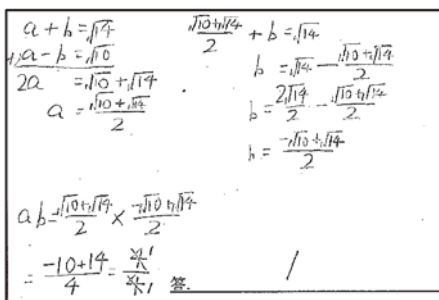 a + b = √14
+) a - b = √10
2a = √10 + √14
a = (√10 + √14)/2
(√10 + √14)/2 + b = √14
b = √14 - (√10 + √14)/2
b = 2√14/2 - (√10 + √14)/2
b = (-√10 + √14)/2
ab = (√10 + √14)/2 × (-√10 + √14)/2
= (-10 + 14)/4 = 4̸1/4̸1
答. 1